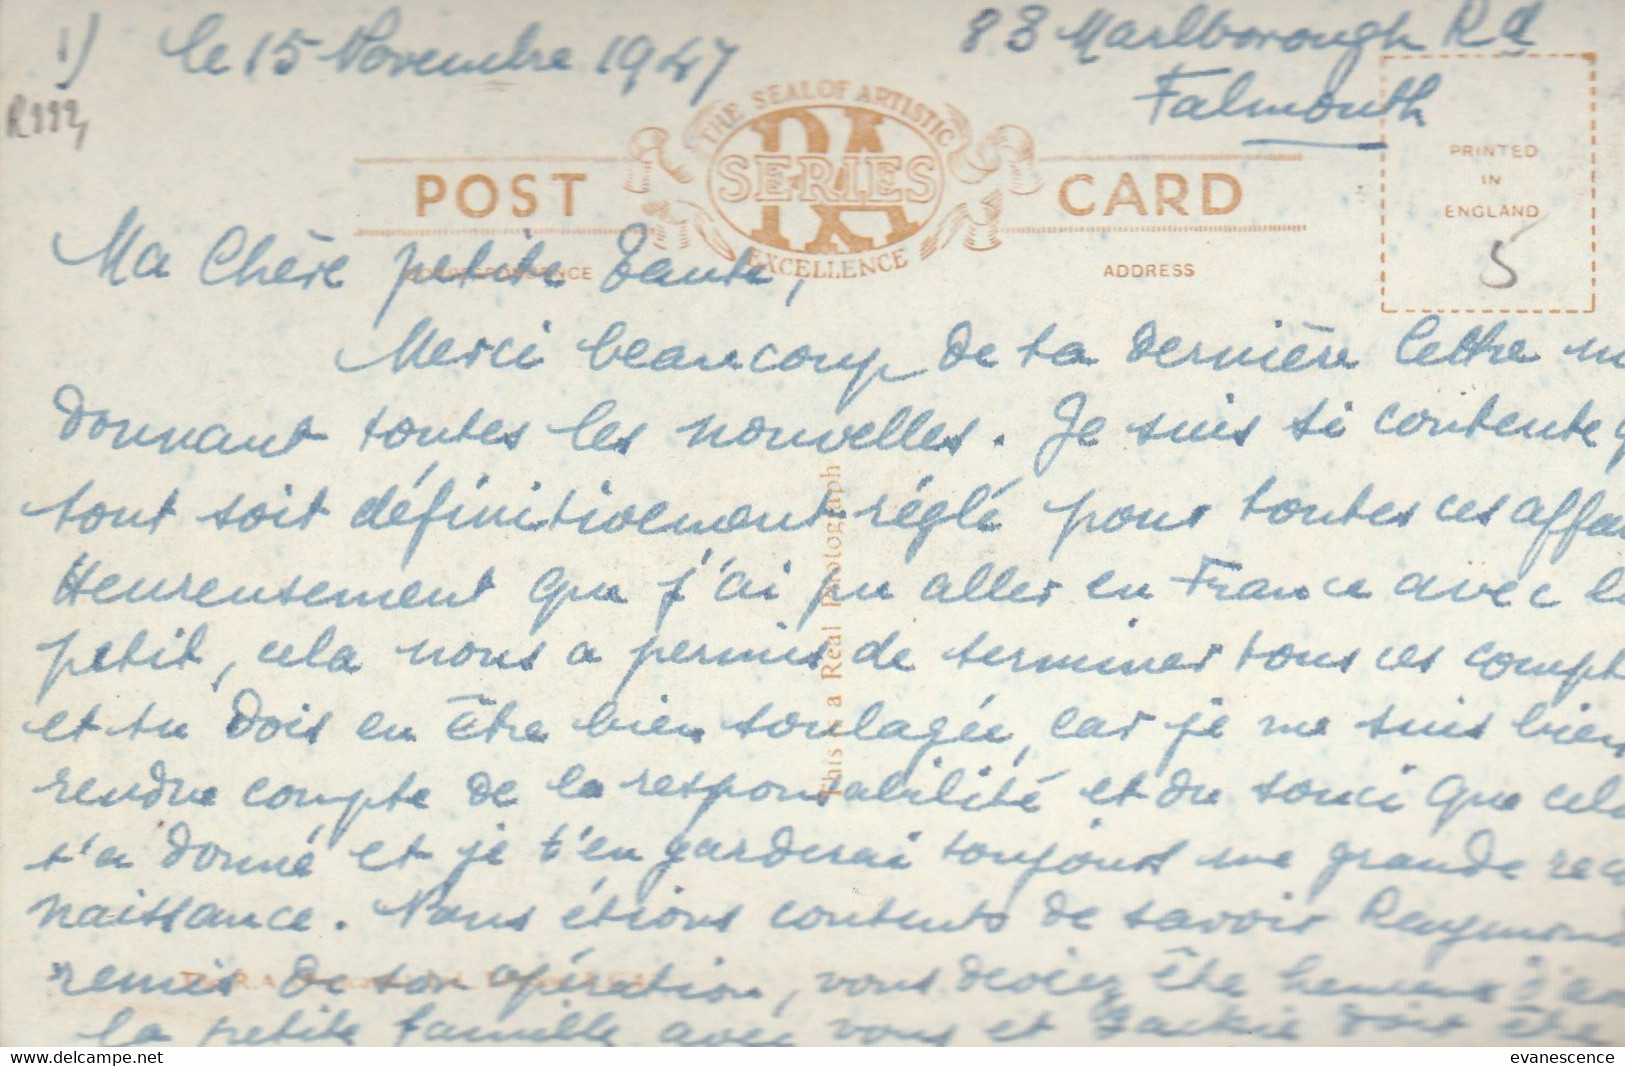 1) le 15 Novembre 1947 83 Marlborough Rd
Falmouth
THE SEAL OF ARTISTIC
RA
SERIES
EXCELLENCE
POST CARD
PRINTED
IN
ENGLAND
5
CORRESPONDENCE
ADDRESS
Ma Chère petite Tante,
Merci beaucoup de ta dernière lettre
donnant toutes les nouvelles. Je suis si contente
tout soit définitivement réglé pour toutes ces affai
Heureusement que j'ai pu aller en France avec le
petit, cela nous a permis de terminer tous ces compt
et tu dois en être bien soulagée, car je me suis bien
rendue compte de la responsabilité et du souci que cela
t'a donné et je t'en garderai toujours une grande rec
naissance. Nous étions contents de savoir Raymond
remis de son opération, vous deviez être heureux d'av
la petite famille avec vous et Jackie doit être
This is a Real Photograph
evanescence
le-livre.com